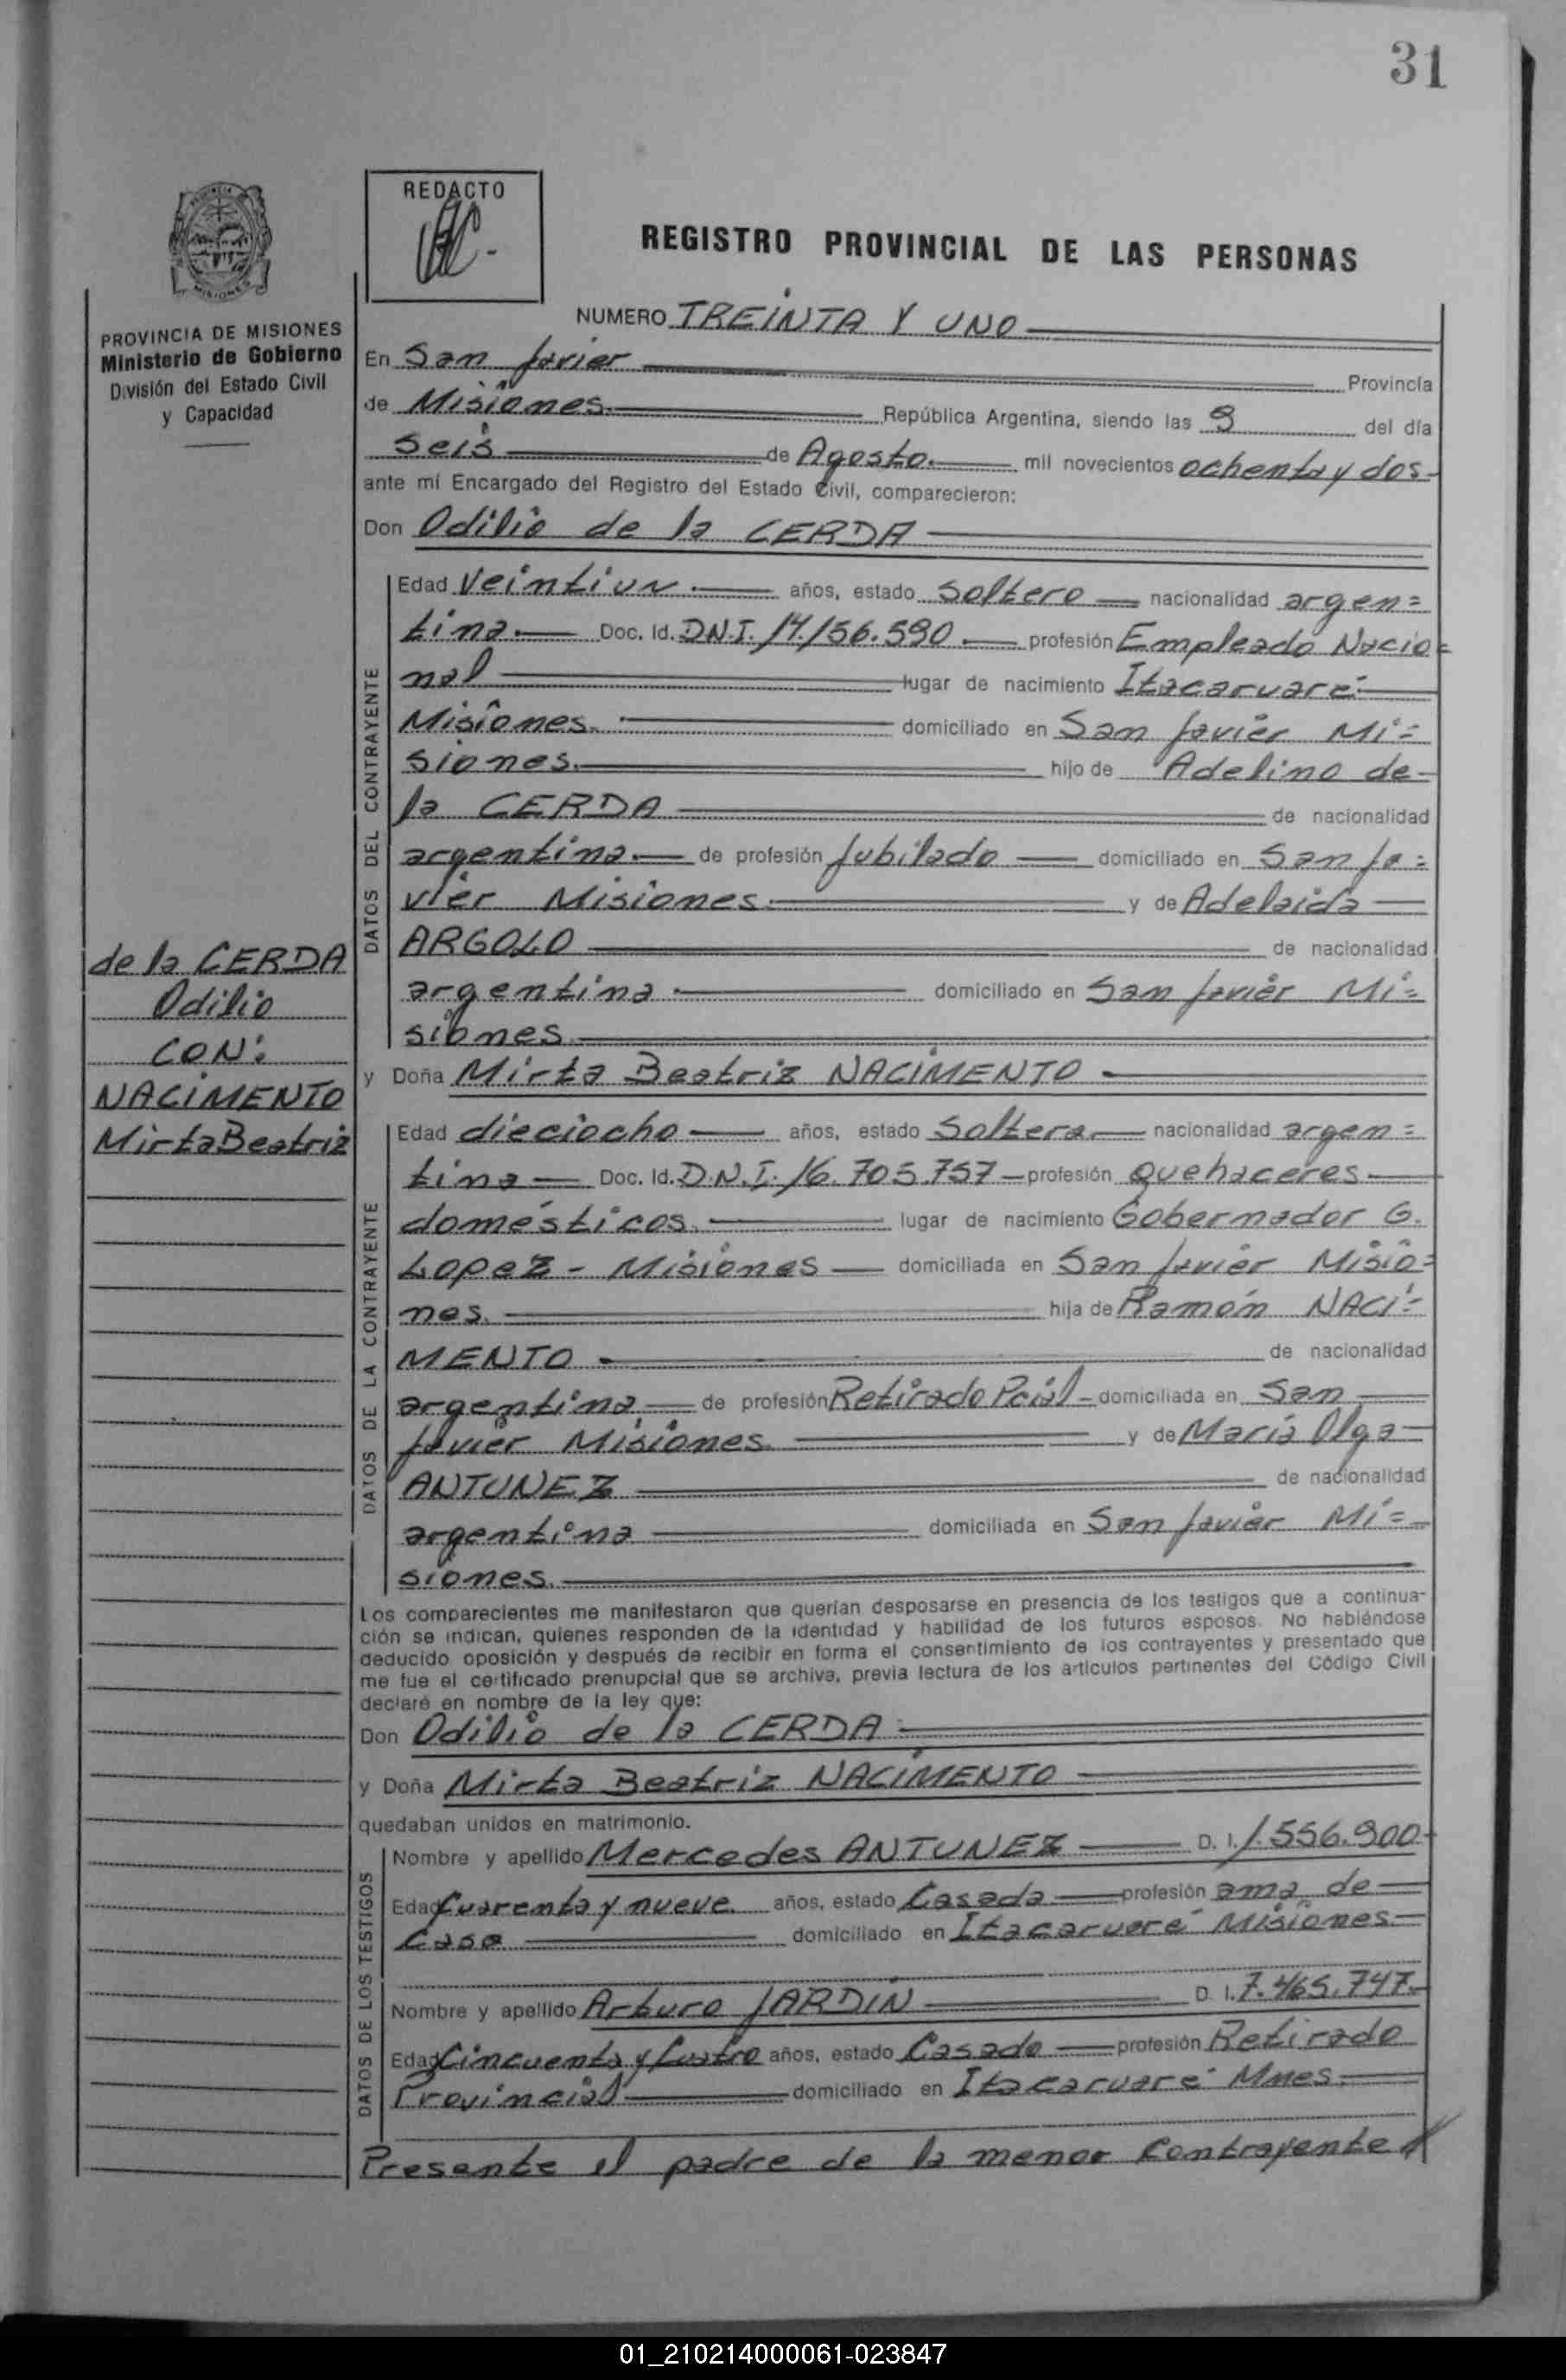 31
REDACTO
REGISTRO PROVINCIAL DE LAS PERSONAS
PROVINCIA DE MISIONES
Ministerio de Gobierno
División del Estado Civil
y Capacidad
NUMERO TREINTA Y UNO
En San Javier Provincia
de Misiones. República Argentina, siendo las 9 del día
seis de Agosto. mil novecientos ochenta y dos.
ante mí Encargado del Registro del Estado Civil, comparecieron:
Don Odilio de la CERDA
DATOS DEL CONTRAYENTE
Edad Veintiun años, estado Soltero nacionalidad argen=
tina. Doc. Id. D.N.I. 14.156.590 profesión Empleado Nacio=
nal lugar de nacimiento Itacaruaré
Misiones. domiciliado en San Javier Mi=
siones. hijo de Adelino de
la CERDA de nacionalidad
argentina. de profesión Jubilado domiciliado en San Ja=
vier Misiones. y de Adelaida
ARGOLO de nacionalidad
argentina. domiciliado en San Javier Mi=
siones.
de la CERDA
Odilio
CON:
NACIMENTO
Mirta Beatriz
y Doña Mirta Beatriz NACIMENTO
DATOS DE LA CONTRAYENTE
Edad dieciocho años, estado Soltera. nacionalidad argen=
tina Doc. Id. D.N.I. 16.705.757 profesión Quehaceres
domésticos. lugar de nacimiento Gobernador G.
Lopez - Misiones domiciliada en San Javier Misio=
nes. hija de Ramón NACI=
MENTO de nacionalidad
argentina de profesión Retirado Pcial - domiciliada en San
Javier Misiones. y de María Olga
ANTUNEZ de nacionalidad
argentina domiciliada en San Javier Mi=
siones.
Los comparecientes me manifestaron que querían desposarse en presencia de los testigos que a continua-
ción se indican, quienes responden de la identidad y habilidad de los futuros esposos. No habiéndose
deducido oposición y después de recibir en forma el consentimiento de los contrayentes y presentado que
me fue el certificado prenupcial que se archiva, previa lectura de los artículos pertinentes del Código Civil
declaré en nombre de la ley que:
Don Odilio de la CERDA
y Doña Mirta Beatriz NACIMENTO
quedaban unidos en matrimonio.
DATOS DE LOS TESTIGOS
Nombre y apellido Mercedes ANTUNEZ D. I. 1.556.900
Edad Cuarenta y nueve. años, estado Casada profesión ama de
Casa domiciliado en Itacaruaré Misiones.
Nombre y apellido Arturo JARDIN D. I. 7.465.747
Edad Cincuenta y Cuatro años, estado Casado profesión Retirado
Provincial domiciliado en Itacaruaré Mnes.
Presente el padre de la menor Contrayente
01_210214000061-023847